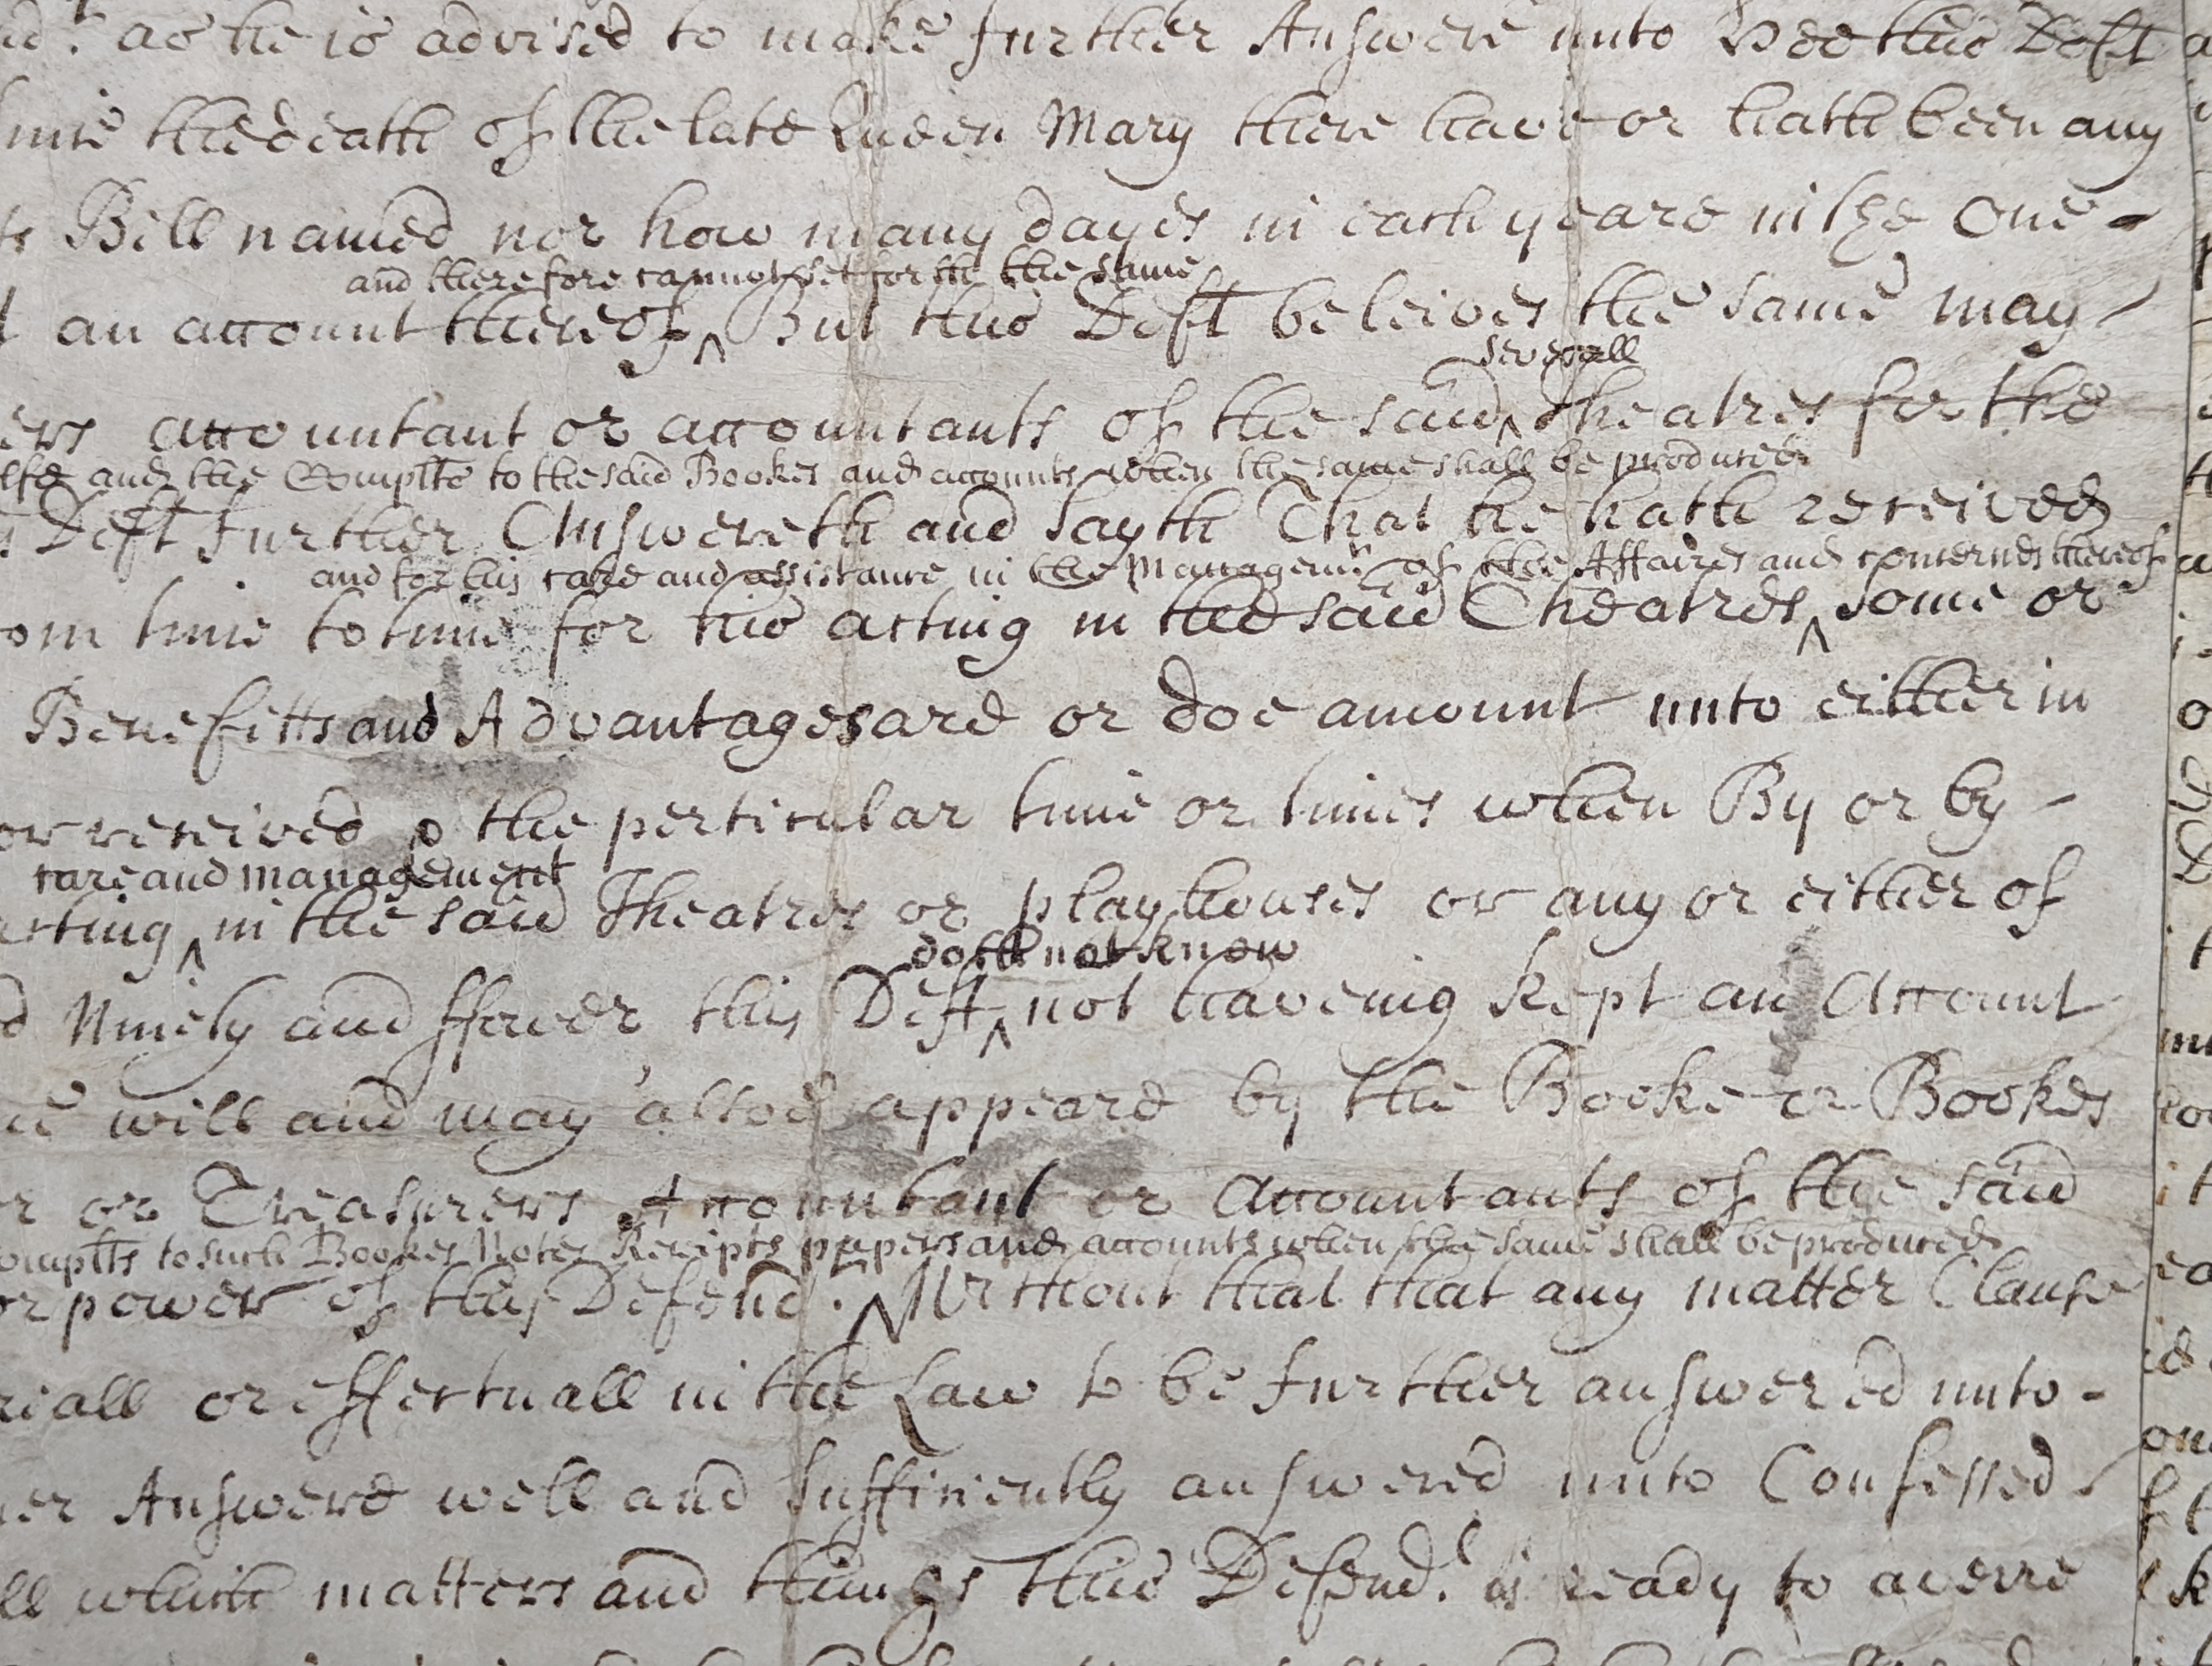 as he is advised to make further Answere unto Hee this Deft
the death of the late Queen Mary there have or hath been any
Bill named nor how many dayes in each yeare in the one -
and therefore cannot sett forth the same
an account thereof ^ But this Deft beleives the same may
severall
ers accountant or accountants of the said ^ Theatres for the
and the Complte to the said Bookes and accounts when the same shall be produced
Deft further Answereth and sayth That he hath received
and for his care and assistance in the Managemt of the Affaires and concernes thereof
om time to time for his acting in the said Theatres ^ some or
Benefitts and Advantages are or doe amount unto either in
or received o the perticular time or times when By or by -
care and management
acting ^ in the said Theatres or playhouses or any or either of
doth not know
d Ninety and ffower this Deft ^ not haveing kept an Account
will and may alsoe appeare by the Booke or Bookes
r or Treasurers Accountant or Accountants of the said
omplts to such Bookes Notes Receipts papers and accounts when the same shall be produced
or power of this Defend. ^ Without that that any matter Clause
riall or effectuall in the Law to be further answered unto -
er Answere well and sufficiently answered unto Confessed
ll which matters and things this Defend.t is ready to averre